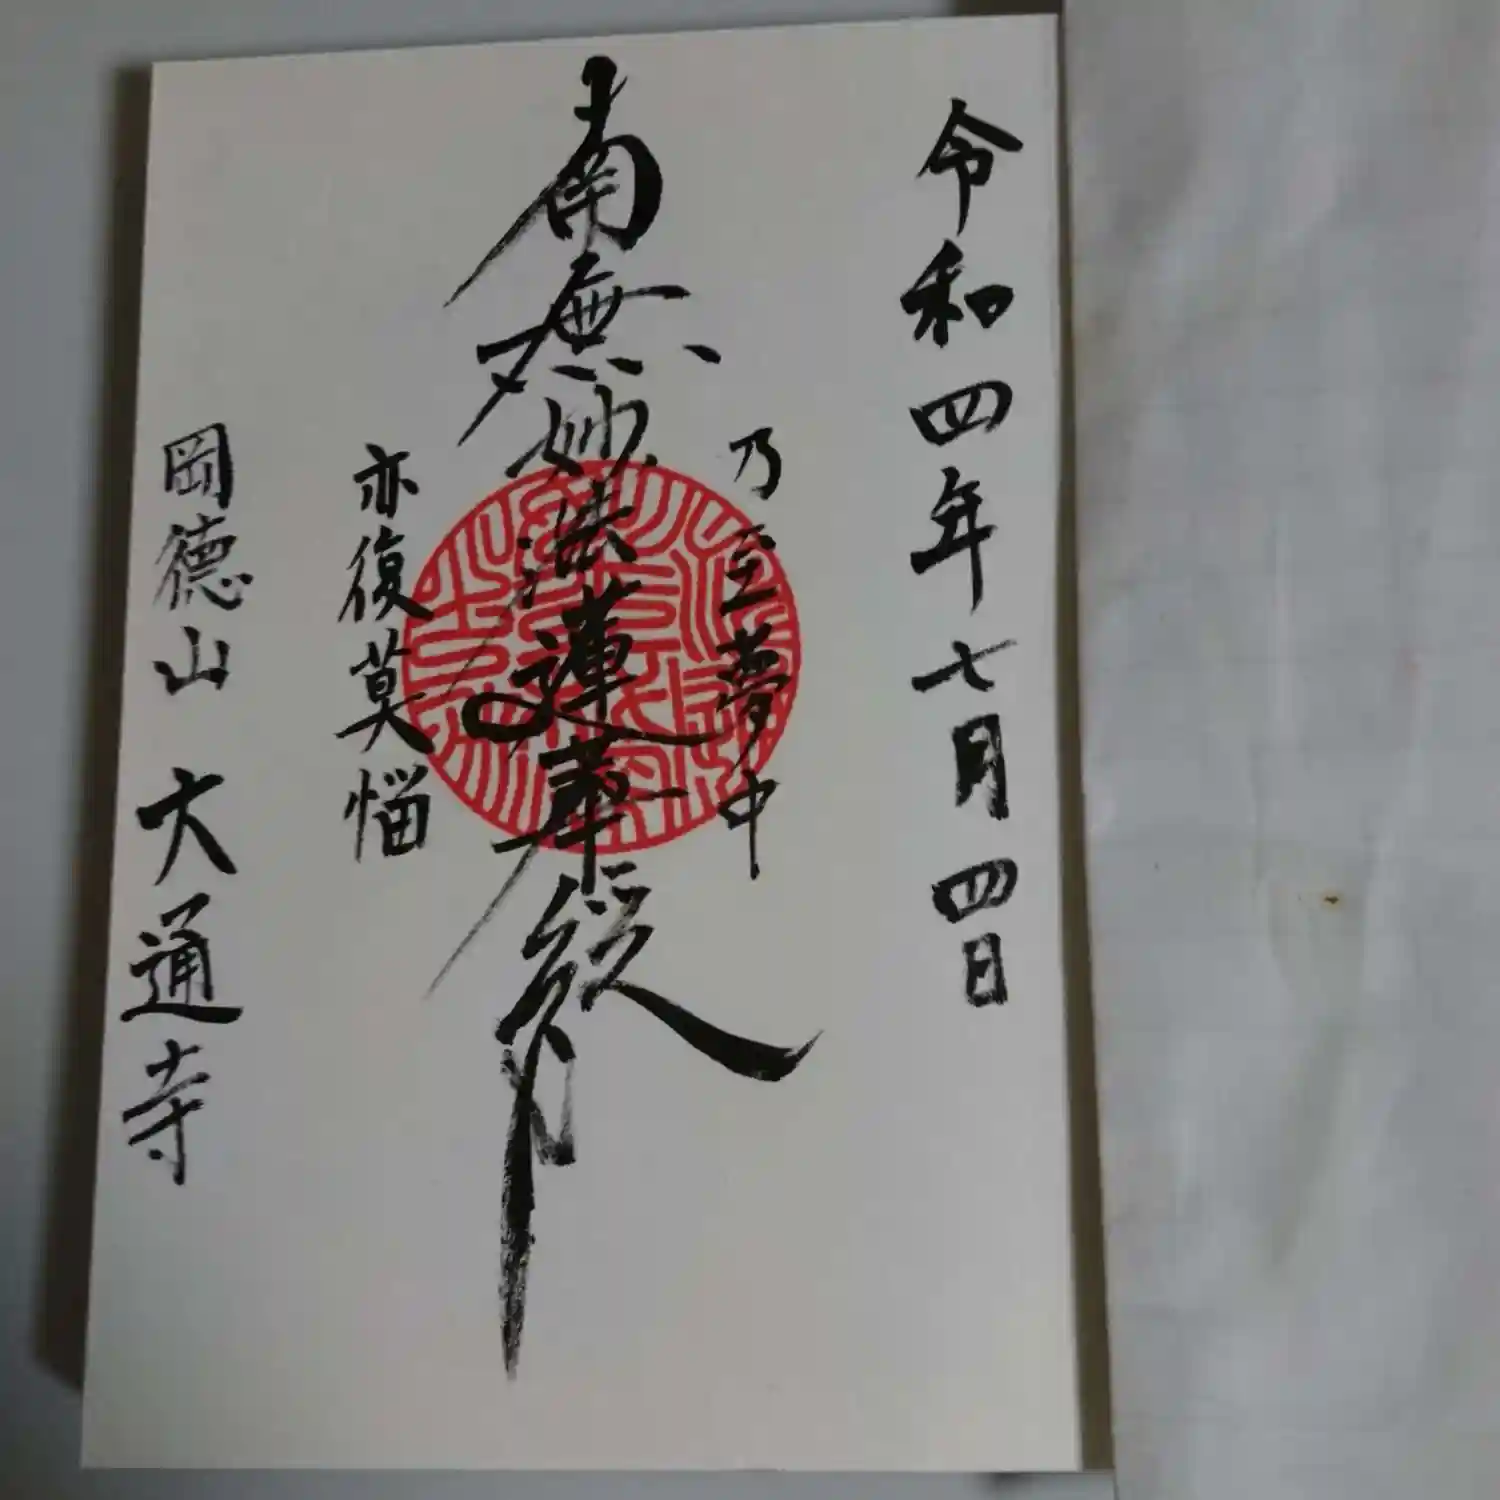 令和四年七月四日
乃至夢中
南無妙法蓮華経
亦復莫悩
岡德山 大通寺